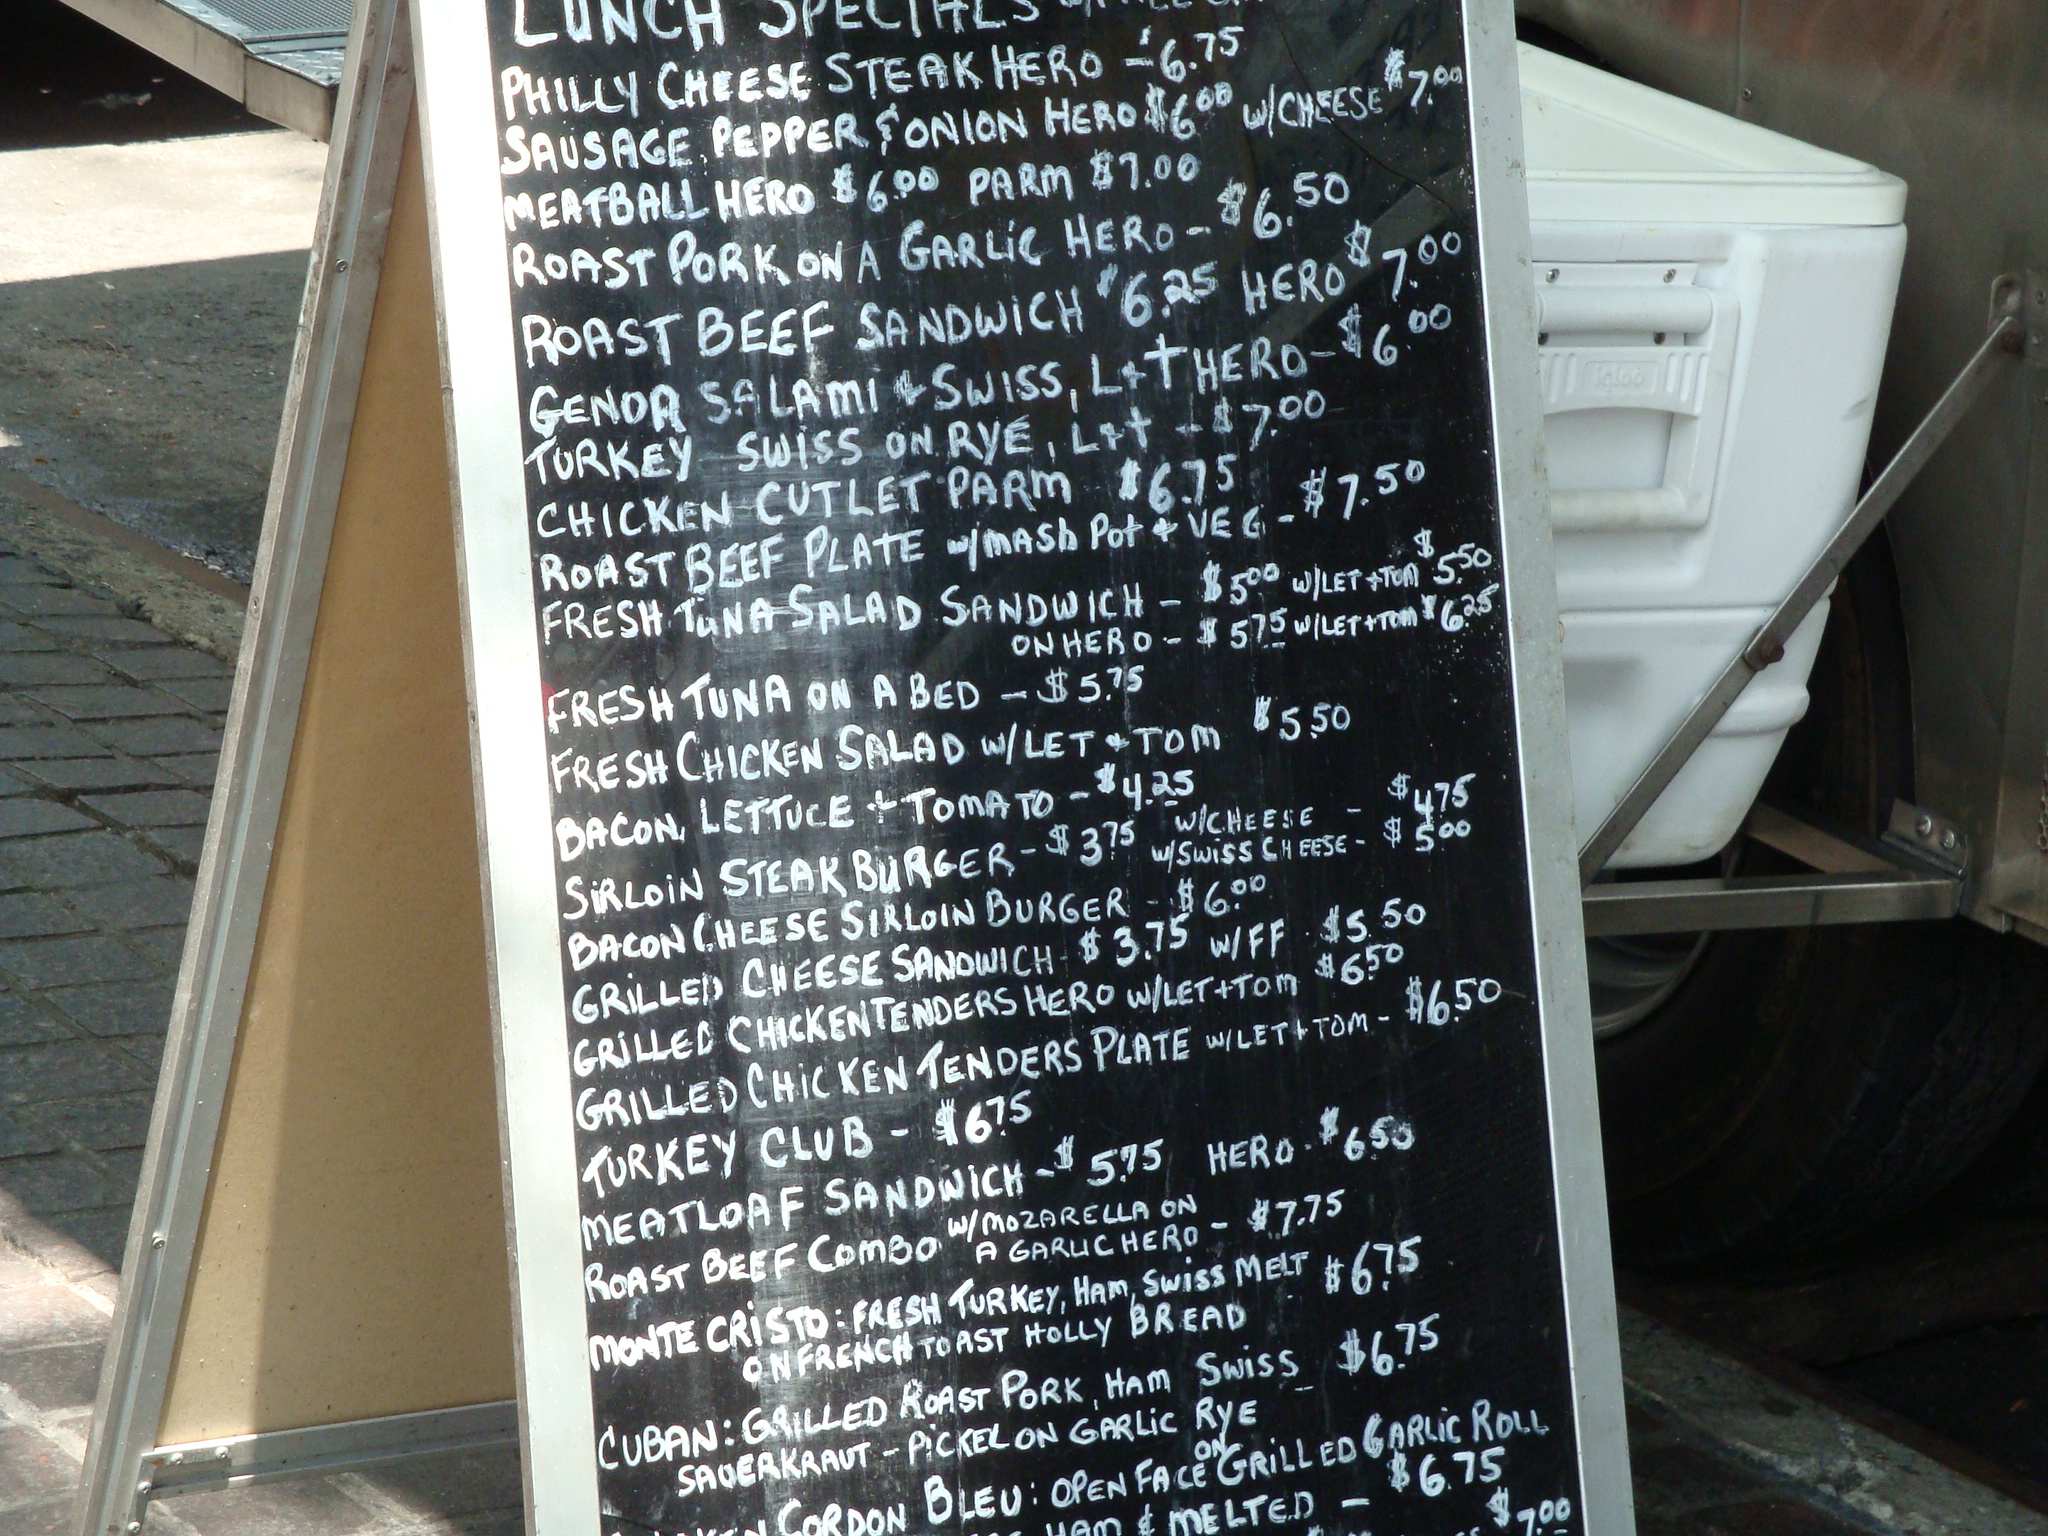 LUNCH SPECIALS
PHILLY CHEESE STEAK HERO - $6.75
SAUSAGE, PEPPER & ONION HERO $6.00 W/CHEESE $7.00
MEATBALL HERO $6.00 PARM $7.00
ROAST PORK ON A GARLIC HERO - $6.50
ROAST BEEF SANDWICH $6.25 HERO $7.00
GENOA SALAMI + SWISS, L+T HERO - $6.00
TURKEY SWISS ON RYE, L+T - $7.00
CHICKEN CUTLET PARM $6.75
ROAST BEEF PLATE W/MASH POT + VEG - $7.50
FRESH TUNA SALAD SANDWICH - $5.00 W/LET + TOM $5.50
ON HERO - $5.75 W/LET + TOM $6.25
FRESH TUNA ON A BED - $5.75
FRESH CHICKEN SALAD W/LET + TOM $5.50
BACON, LETTUCE + TOMATO - $4.25
SIRLOIN STEAK BURGER - $3.75 W/CHEESE - $4.75
W/SWISS CHEESE - $5.00
BACON CHEESE SIRLOIN BURGER - $6.00
GRILLED CHEESE SANDWICH - $3.75 W/FF $5.50
GRILLED CHICKEN TENDERS HERO W/LET + TOM $6.50
GRILLED CHICKEN TENDERS PLATE W/LET + TOM - $6.50
TURKEY CLUB - $6.75
MEATLOAF SANDWICH - $5.75 HERO - $6.50
ROAST BEEF COMBO W/MOZARELLA ON
A GARLIC HERO - $7.75
MONTE CRISTO: FRESH TURKEY, HAM, SWISS MELT $6.75
ON FRENCH TOAST HOLLY BREAD
CUBAN: GRILLED ROAST PORK, HAM SWISS $6.75
SAUERKRAUT - PICKEL ON GARLIC RYE
CORDON BLEU: OPEN FACE ON GRILLED GARLIC ROLL
HAM & MELTED - $6.75
$7.00
Igloo